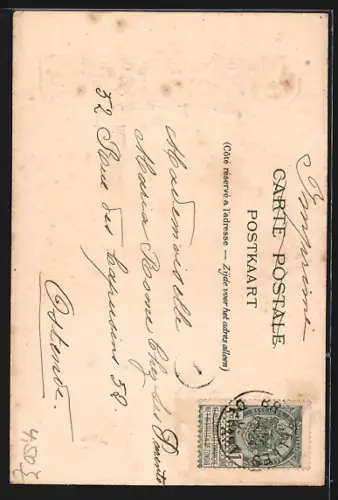 Imprimé
CARTE POSTALE
POSTKAART
(Côté réservé à l'adresse — Zijde voor het adres alleen)
Mademoiselle
Maria Rosme Chez ses Parents
52 Rue des Capucins 52.
Ostende.
4,50